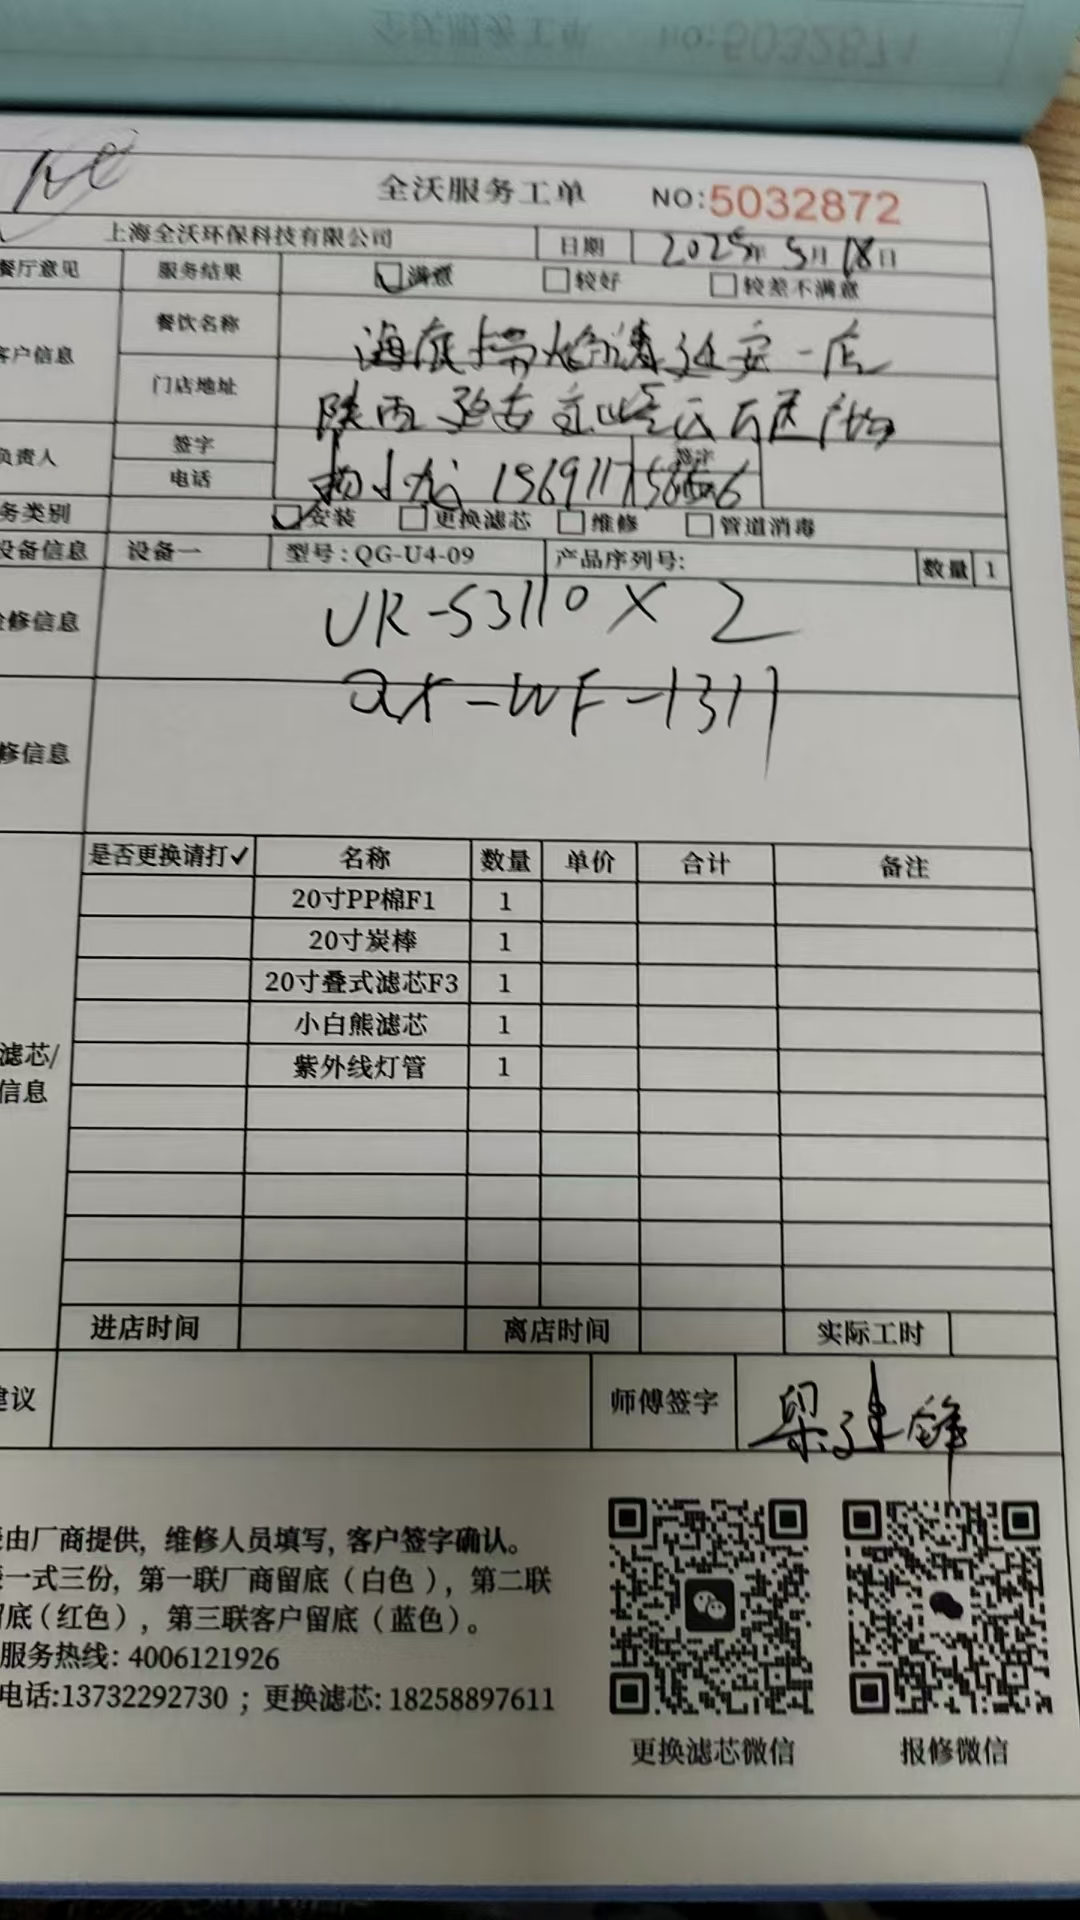 全沃服务工单 NO:5032872
上海全沃环保科技有限公司 日期 2025年5月18日
餐厅意见 服务结果 满意 较好 较差不满意
客户信息 餐饮名称 海底捞火锅 延安一店
门店地址 陕西 延安 万达广场
负责人 签字 签字
电话 杨小龙 1569117
务类别 安装 更换滤芯 维修 管道消毒
设备信息 设备一 型号:QG-U4-09 产品序列号: 数量 1
修信息 UR-S3110 X 2
ax-WF-1311
修信息
是否更换请打✓ 名称 数量 单价 合计 备注
20寸PP棉F1 1
20寸炭棒 1
20寸叠式滤芯F3 1
滤芯/ 小白熊滤芯 1
信息 紫外线灯管 1
进店时间 离店时间 实际工时
建议 师傅签字 梁建锋
由厂商提供, 维修人员填写, 客户签字确认。
一式三份, 第一联厂商留底(白色), 第二联
留底(红色), 第三联客户留底(蓝色)。
服务热线: 4006121926
电话:13732292730 ; 更换滤芯: 18258897611
更换滤芯微信 报修微信